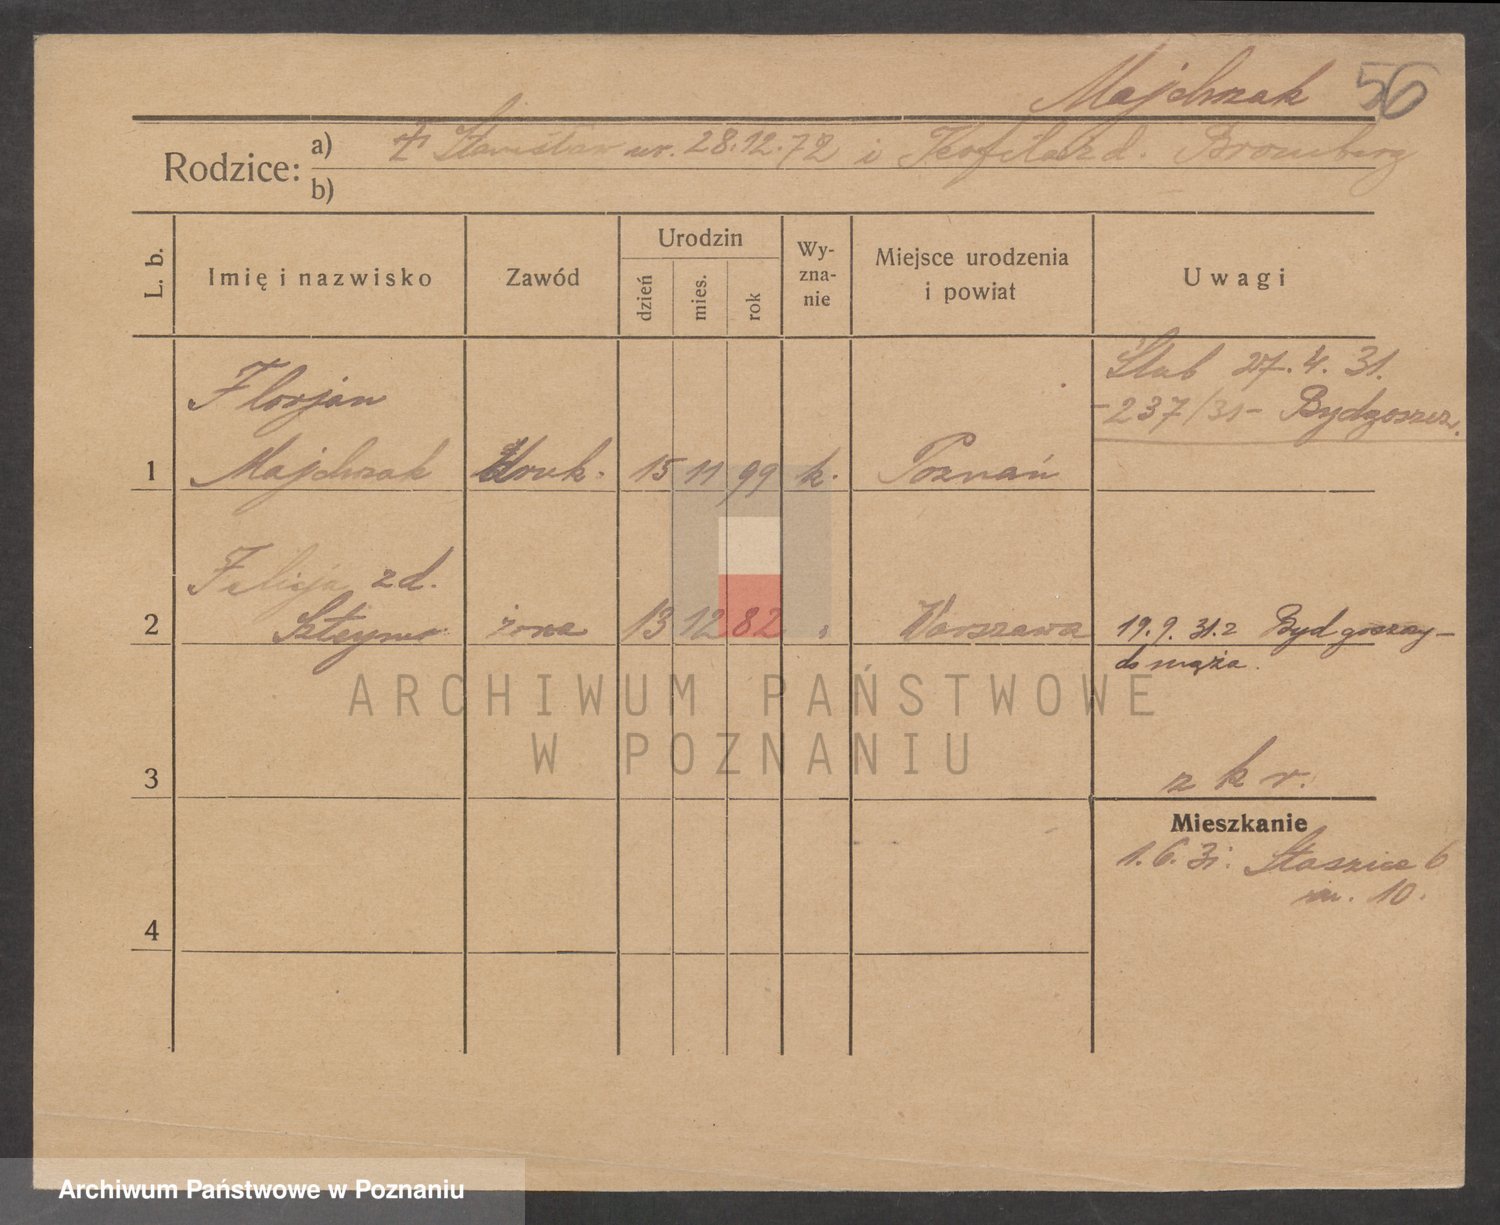 Majchrzak 56
Rodzice: a) Stanisław ur. 28.12.72 i Teofila z d. Bromberg
b)
L. b. Imię i nazwisko Zawód Urodzin dzień mies. rok Wy-zna-nie Miejsce urodzenia i powiat Uwagi
Ślub 27.4.31.
-237/31- Bydgoszcz.
Florjan
1 Majchrzak 15 11 99 k. Poznań
Felicja z d.
2 żona 13 12 82 " Warszawa 19.9.31 z Bydgoszczy-
do męża.
3 z k r.
Mieszkanie
1.6.31. Staszica 6
m. 10.
4
ARCHIWUM PAŃSTWOWE
W POZNANIU
Archiwum Państwowe w Poznaniu